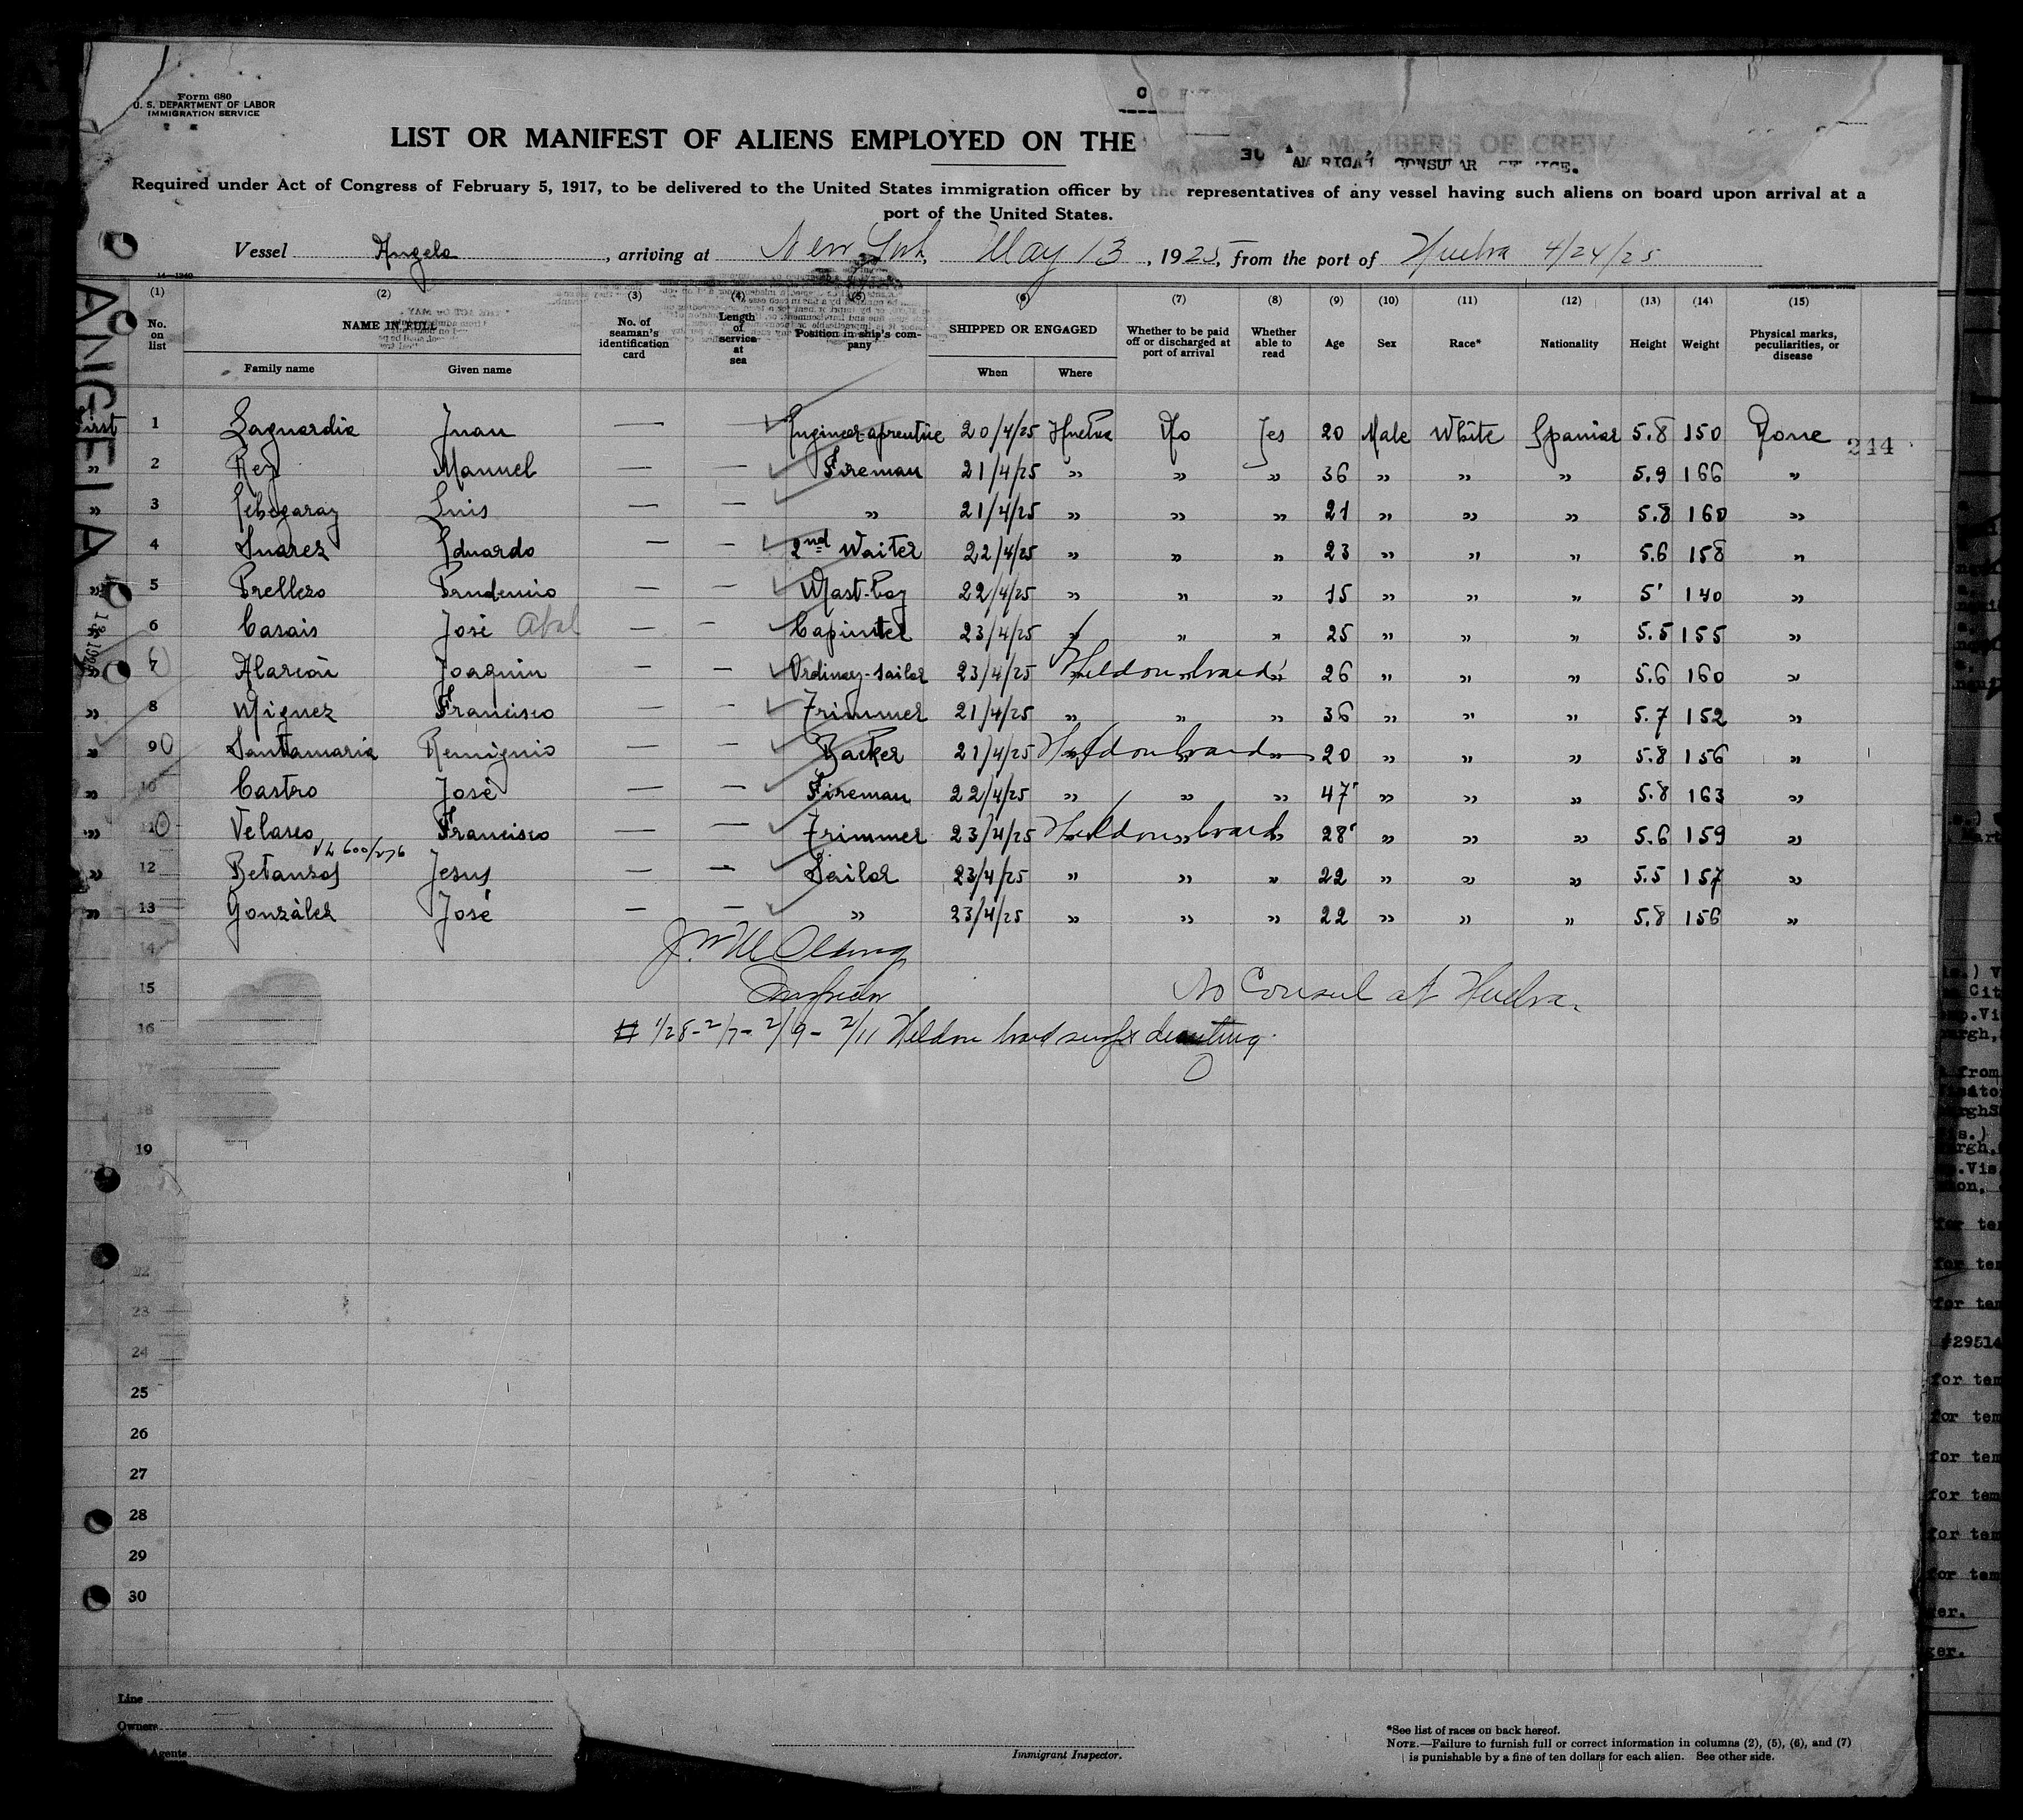 Form 680
U. S. DEPARTMENT OF LABOR
IMMIGRATION SERVICE
LIST OR MANIFEST OF ALIENS EMPLOYED ON THE AS MEMBERS OF CREW
AMERICAN CONSULAR SERVICE.
Required under Act of Congress of February 5, 1917, to be delivered to the United States immigration officer by the representatives of any vessel having such aliens on board upon arrival at a
port of the United States.
Vessel Angela, arriving at New York, May 13, 1925, from the port of Huelva 4/24/25
ANGELA
(1) (2) (3) (4) (5) (6) (7) (8) (9) (10) (11) (12) (13) (14) (15)
No. on list NAME IN FULL No. of seaman's identification card Length of service at sea Position in ship's company SHIPPED OR ENGAGED Whether to be paid off or discharged at port of arrival Whether able to read Age Sex Race* Nationality Height Weight Physical marks, peculiarities, or disease
Family name Given name When Where
First 1 Laguardia Juan — Engineer aprentice 20/4/25 Huelva No Yes 20 Male White Spaniar 5.8 150 None 244
" 2 Rey Manuel — — Fireman 21/4/25 " " " 36 " " " 5.9 166 "
" 3 Echegaray Luis — — " 21/4/25 " " " 21 " " " 5.8 160 "
4 Suarez Eduardo — — 2nd Waiter 22/4/25 " " " 23 " " " 5.6 158 "
" 5 Prellezo Prudencio — — Mast-Boy 22/4/25 " " " 15 " " " 5' 140 "
6 Casais José Abal — — Capinter 23/4/25 " " " 25 " " " 5.5 155 "
" 7 Alarcón Joaquin — — Ordinary-sailor 23/4/25 Held on board 26 " " " 5.6 160 "
" 8 Miguez Francisco — — Trimmer 21/4/25 " " " 36 " " " 5.7 152 "
" 9 Santamaria Remignio — — Backer 21/4/25 Held on board 20 " " " 5.8 156 "
" 10 Castro José — — Fireman 22/4/25 " " " 47 " " " 5.8 163 "
" 11 Velasco Francisco — — Trimmer 23/4/25 Held on board 28 " " " 5.6 159 "
600/276
" 12 Betanzos Jesus — — Sailor 23/4/25 " " " 22 " " " 5.5 157 "
" 13 Gonzàlez José — — " 23/4/25 " " " 22 " " " 5.8 156 "
14
15 Inspector No Consul at Huelva.
16 # 1/28 - 2/7 - 2/9 - 2/11 Held on board
17
18
19
22
23
24
25
26
27
28
29
30
Line
Owners
Agents
Immigrant Inspector.
*See list of races on back hereof.
NOTE.—Failure to furnish full or correct information in columns (2), (5), (6), and (7)
is punishable by a fine of ten dollars for each alien. See other side.